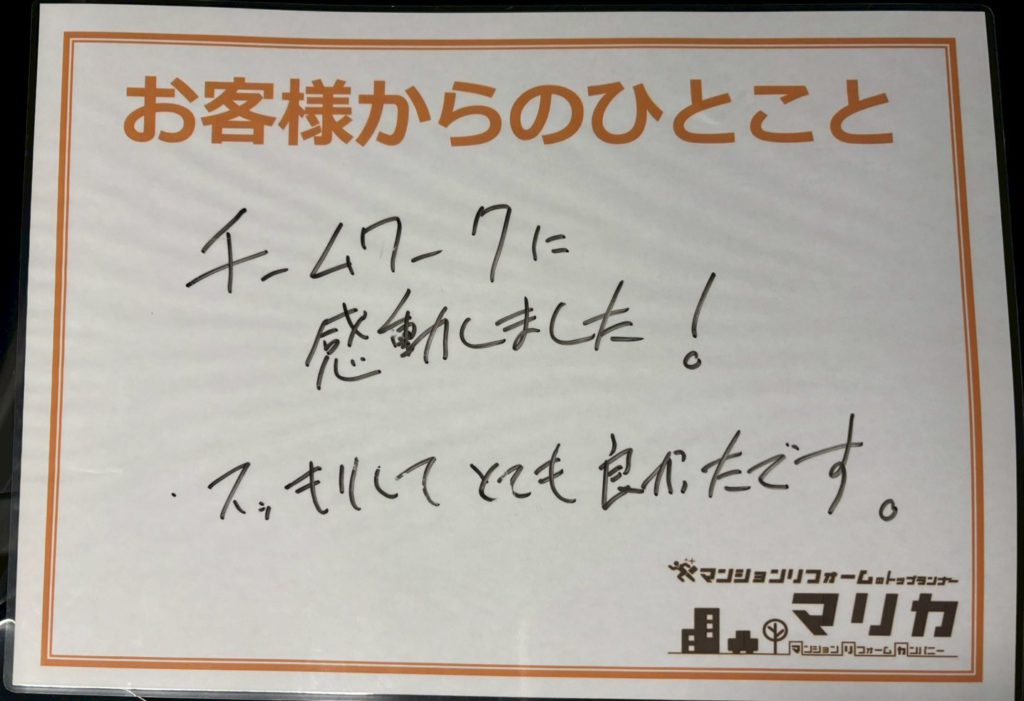 お客様からのひとこと
チームワークに
感動しました!
・スッキリして とても 良かったです。
マンションリフォームのトップランナー
マリカ
マンションリフォームカンパニー